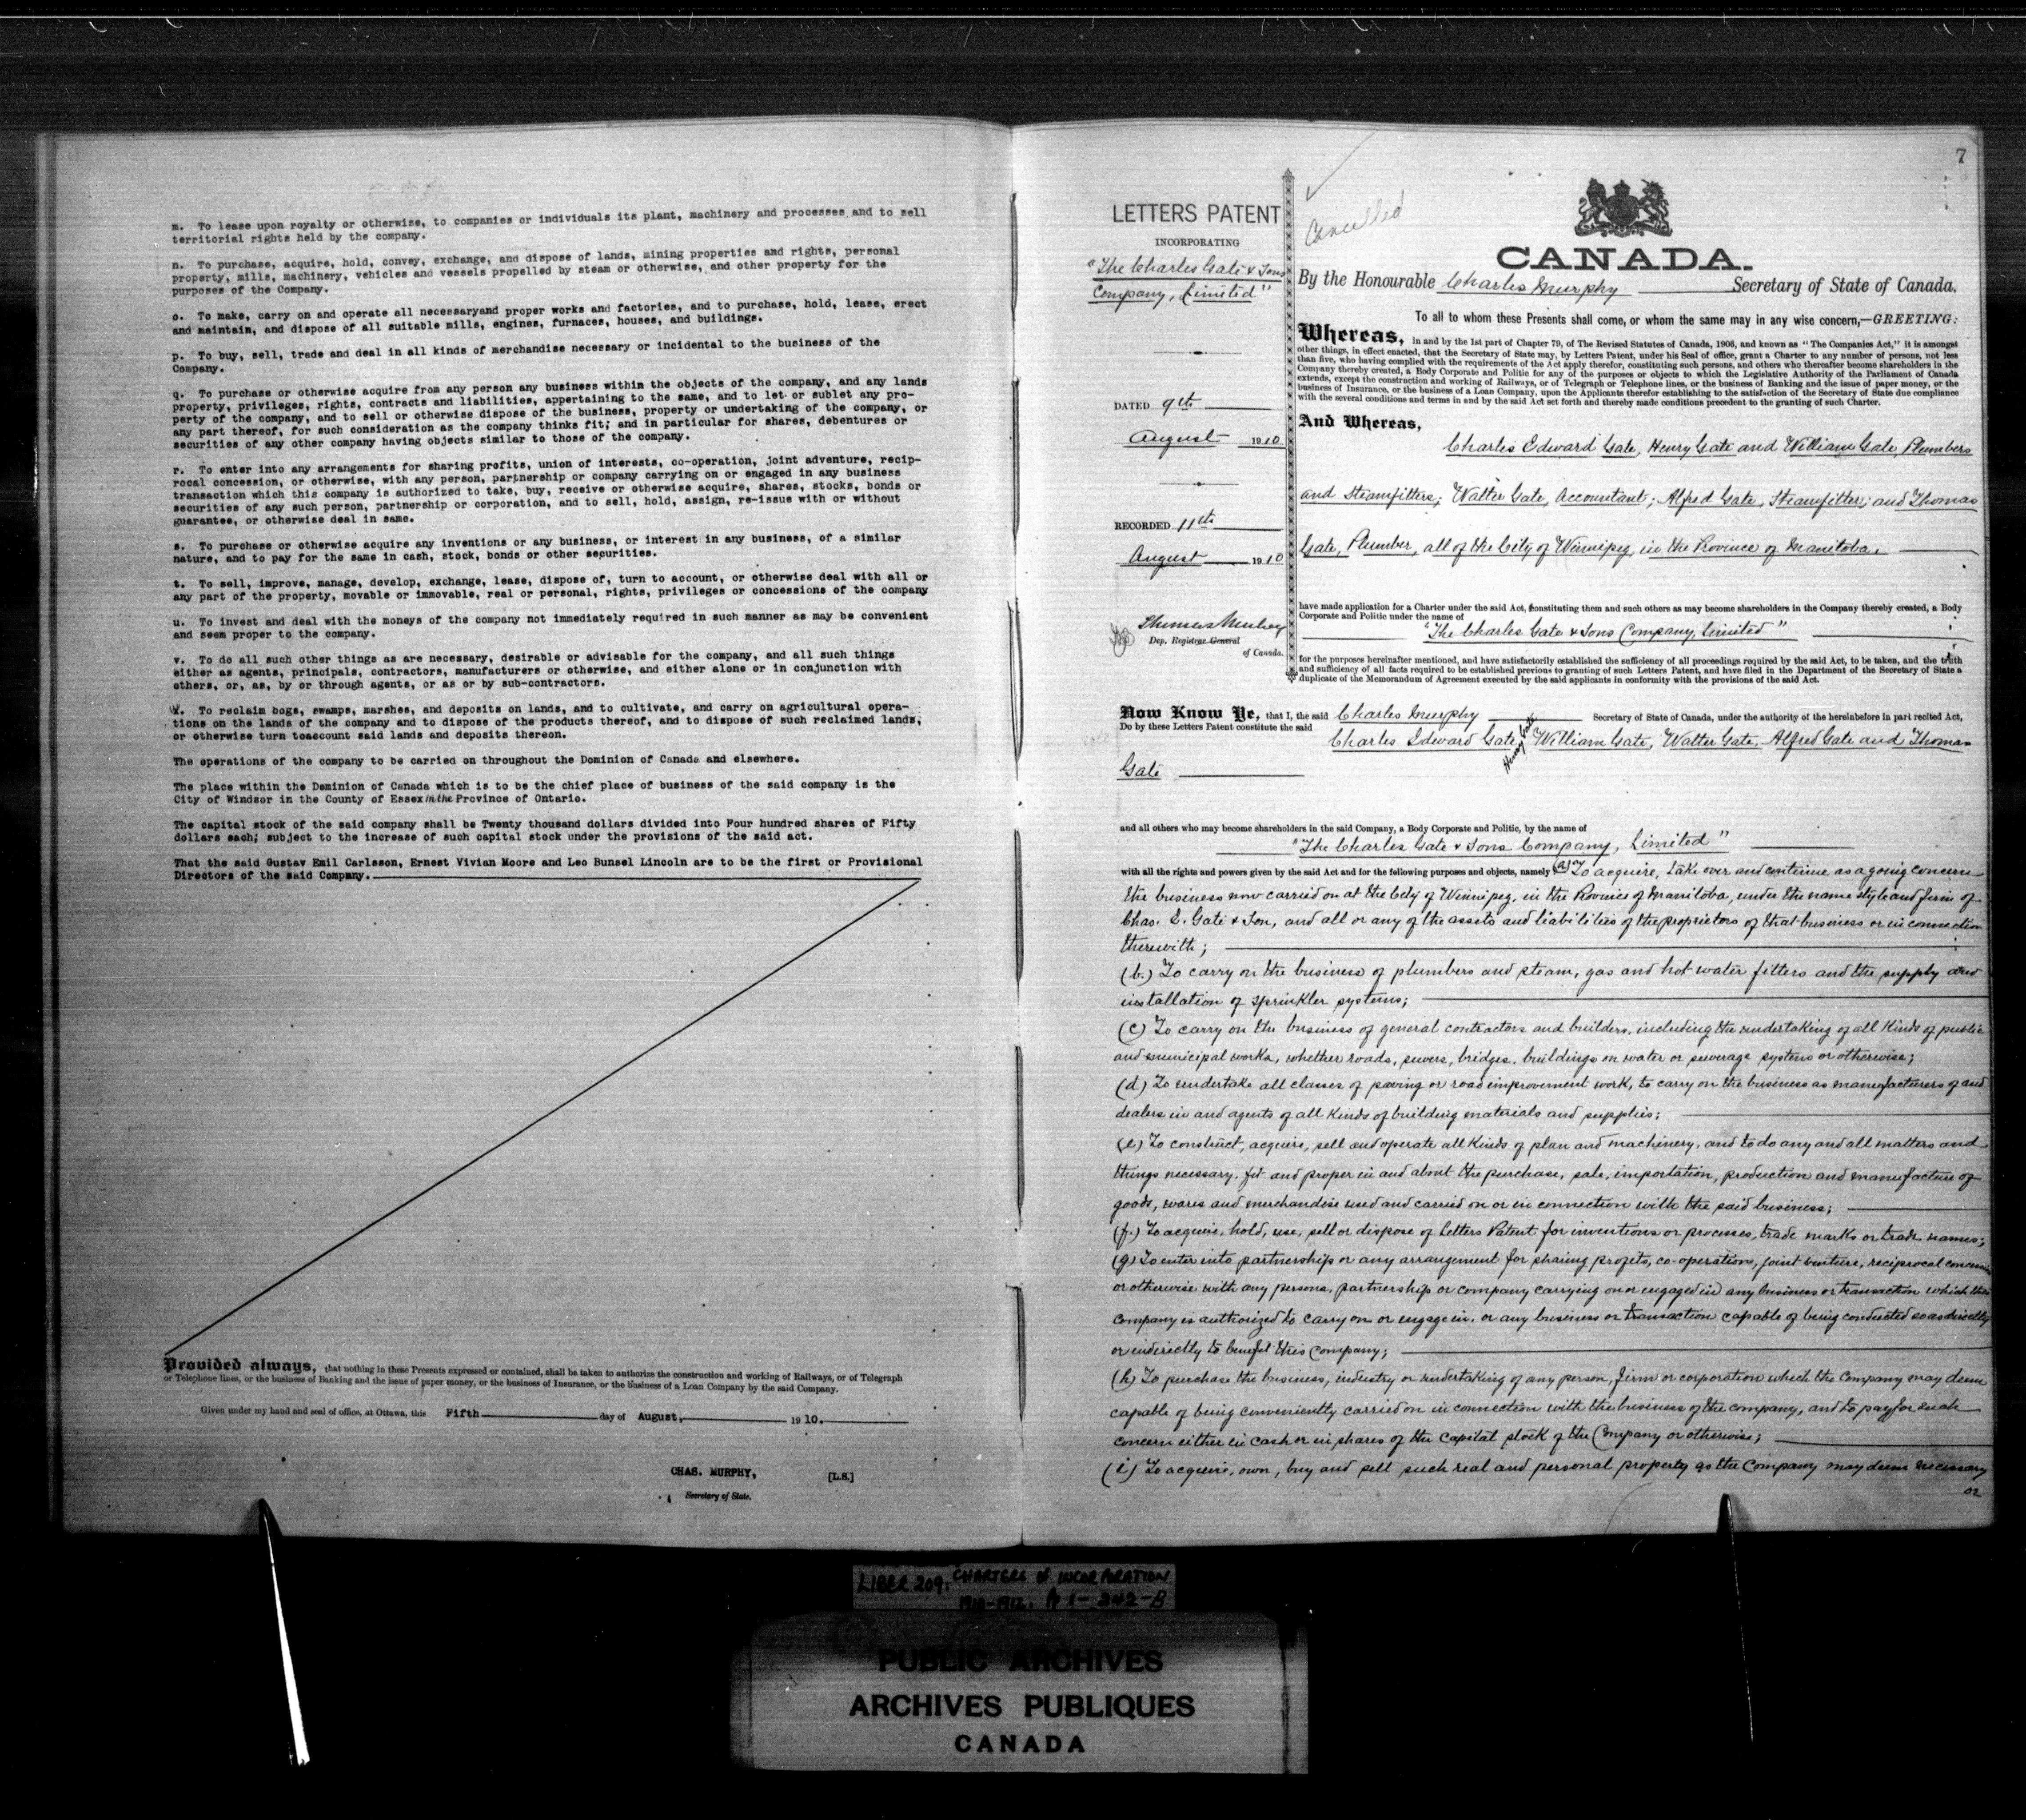 m. To lease upon royalty or otherwise, to companies or individuals its plant, machinery and processes and to sell
territorial rights held by the company.
n. To purchase, acquire, hold, convey, exchange, and dispose of lands, mining properties and rights, personal
property, mills, machinery, vehicles and vessels propelled by steam or otherwise, and other property for the
purposes of the Company.
o. To make, carry on and operate all necessaryand proper works and factories, and to purchase, hold, lease, erect
and maintain, and dispose of all suitable mills, engines, furnaces, houses, and buildings.
p. To buy, sell, trade and deal in all kinds of merchandise necessary or incidental to the business of the
Company.
q. To purchase or otherwise acquire from any person any business within the objects of the company, and any lands
property, privileges, rights, contracts and liabilities, appertaining to the same, and to let or sublet any pro-
perty of the company, and to sell or otherwise dispose of the business, property or undertaking of the company, or
any part thereof, for such consideration as the company thinks fit; and in particular for shares, debentures or
securities of any other company having objects similar to those of the company.
r. To enter into any arrangements for sharing profits, union of interests, co-operation, joint adventure, recip-
rocal concession, or otherwise, with any person, partnership or company carrying on or engaged in any business
transaction which this company is authorized to take, buy, receive or otherwise acquire, shares, stocks, bonds or
securities of any such person, partnership or corporation, and to sell, hold, assign, re-issue with or without
guarantee, or otherwise deal in same.
s. To purchase or otherwise acquire any inventions or any business, or interest in any business, of a similar
nature, and to pay for the same in cash, stock, bonds or other securities.
t. To sell, improve, manage, develop, exchange, lease, dispose of, turn to account, or otherwise deal with all or
any part of the property, movable or immovable, real or personal, rights, privileges or concessions of the company
u. To invest and deal with the moneys of the company not immediately required in such manner as may be convenient
and seem proper to the company.
v. To do all such other things as are necessary, desirable or advisable for the company, and all such things
either as agents, principals, contractors, manufacturers or otherwise, and either alone or in conjunction with
others, or, as, by or through agents, or as or by sub-contractors.
To reclaim bogs, swamps, marshes, and deposits on lands, and to cultivate, and carry on agricultural opera-
tions on the lands of the company and to dispose of the products thereof, and to dispose of such reclaimed lands,
or otherwise turn toaccount said lands and deposits thereon.
The operations of the company to be carried on throughout the Dominion of Canada and elsewhere.
The place within the Dominion of Canada which is to be the chief place of business of the said company is the
City of Windsor in the County of Essex in the Province of Ontario.
The capital stock of the said company shall be Twenty thousand dollars divided into Four hundred shares of Fifty
dollars each; subject to the increase of such capital stock under the provisions of the said act.
That the said Gustav Emil Carlsson, Ernest Vivian Moore and Leo Bunsel Lincoln are to be the first or Provisional
Directors of the said Company.
Provided always, that nothing in these Presents expressed or contained, shall be taken to authorize the construction and working of Railways, or of Telegraph
or Telephone lines, or the business of Banking and the issue of paper money, or the business of Insurance, or the business of a Loan Company by the said Company.
Given under my hand and seal of office, at Ottawa, this Fifth day of August, 1910.
CHAS. MURPHY, [L.S.]
Secretary of State.
7
LETTERS PATENT
INCORPORATING
"The Charles Gate & Sons
Company, Limited"
DATED 9th
August 1910
RECORDED 11th
August 1910
Thomas Mulvey
Dep. Registrar General
of Canada.
Cancelled
CANADA.
By the Honourable Charles Murphy Secretary of State of Canada.
To all to whom these Presents shall come, or whom the same may in any wise concern,—GREETING:
Whereas, in and by the 1st part of Chapter 79, of The Revised Statutes of Canada, 1906, and known as "The Companies Act," it is amongst
other things, in effect enacted, that the Secretary of State may, by Letters Patent, under his Seal of office, grant a Charter to any number of persons, not less
than five, who having complied with the requirements of the Act apply therefor, constituting such persons, and others who thereafter become shareholders in the
Company thereby created, a Body Corporate and Politic for any of the purposes or objects to which the Legislative Authority of the Parliament of Canada
extends, except the construction and working of Railways, or of Telegraph or Telephone lines, or the business of Banking and the issue of paper money, or the
business of Insurance, or the business of a Loan Company, upon the Applicants therefor establishing to the satisfaction of the Secretary of State due compliance
with the several conditions and terms in and by the said Act set forth and thereby made conditions precedent to the granting of such Charter.
And Whereas,
Charles Edward Gate, Henry Gate and William Gate, Plumbers
and Steamfitters; Walter Gate, Accountant; Alfred Gate, Steamfitter; and Thomas
Gate, Plumber, all of the City of Winnipeg, in the Province of Manitoba.
have made application for a Charter under the said Act, constituting them and such others as may become shareholders in the Company thereby created, a Body
Corporate and Politic under the name of
"The Charles Gate & Sons Company, Limited"
for the purposes hereinafter mentioned, and have satisfactorily established the sufficiency of all proceedings required by the said Act, to be taken, and the truth
and sufficiency of all facts required to be established previous to granting of such Letters Patent, and have filed in the Department of the Secretary of State a
duplicate of the Memorandum of Agreement executed by the said applicants in conformity with the provisions of the said Act.
Now Know Ye, that I, the said Charles Murphy Secretary of State of Canada, under the authority of the hereinbefore in part recited Act,
Do by these Letters Patent constitute the said
Charles Edward Gate, Henry Gate, William Gate, Walter Gate, Alfred Gate and Thomas
Gate
and all others who may become shareholders in the said Company, a Body Corporate and Politic, by the name of
"The Charles Gate & Sons Company, Limited"
with all the rights and powers given by the said Act and for the following purposes and objects, namely (a) To acquire, take over and continue as a going concern
the business now carried on at the City of Winnipeg, in the Province of Manitoba, under the name style and firm of
Chas. E. Gate & Son, and all or any of the assets and liabilities of the proprietors of that business or in connection
therewith;
(b.) To carry on the business of plumbers and steam, gas and hot water fitters and the supply and
installation of sprinkler systems;
(c) To carry on the business of general contractors and builders, including the undertaking of all kinds of public
and municipal works, whether roads, sewers, bridges, buildings on water or sewerage systems or otherwise;
(d) To undertake all classes of paving or road improvement work, to carry on the business as manufacturers of and
dealers in and agents of all kinds of building materials and supplies;
(e) To construct, acquire, sell and operate all kinds of plan and machinery, and to do any and all matters and
things necessary, fit and proper in and about the purchase, sale, importation, production and manufacture of
goods, wares and merchandise used and carried on or in connection with the said business;
(f.) To acquire, hold, use, sell or dispose of Letters Patent for inventions or processes, trade marks or trade names;
(g) To enter into partnership or any arrangement for sharing profits, co-operation, joint venture, reciprocal concession
or otherwise with any persons, partnership or company carrying on or engaged in any business or transaction which this
Company is authorized to carry on or engage in, or any business or transaction capable of being conducted so as directly
or indirectly to benefit this Company;
(h) To purchase the business, industry or undertaking of any person, firm or corporation which the Company may deem
capable of being conveniently carried on in connection with the business of the company, and to pay for such
concern either in cash or in shares of the capital stock of the Company or otherwise;
(i) To acquire, own, buy and sell such real and personal property as the Company may deem necessary
or
LIBER 209: CHARTERS of INCORPORATION
1910-1912. p 1-242-B
PUBLIC ARCHIVES
ARCHIVES PUBLIQUES
CANADA